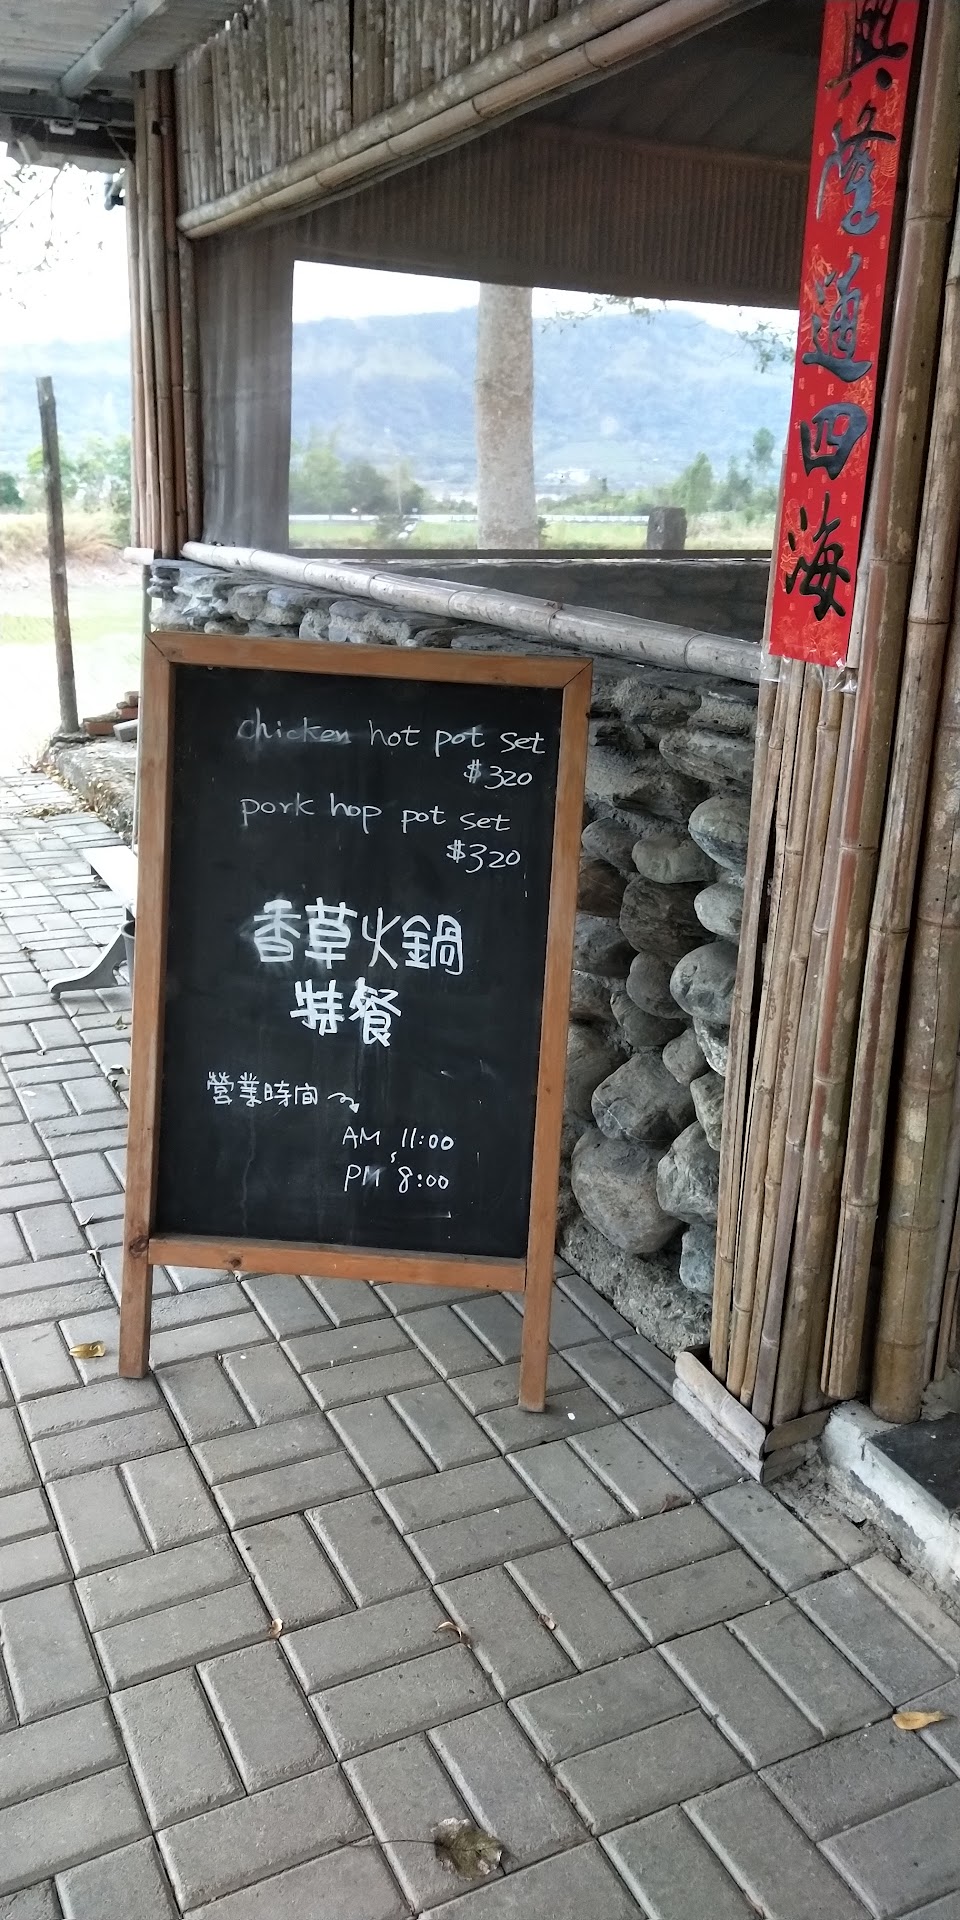 chicken hot pot set
$320
pork hop pot set
$320
香草火鍋
特餐
營業時間
AM 11:00
PM 8:00
興隆通四海